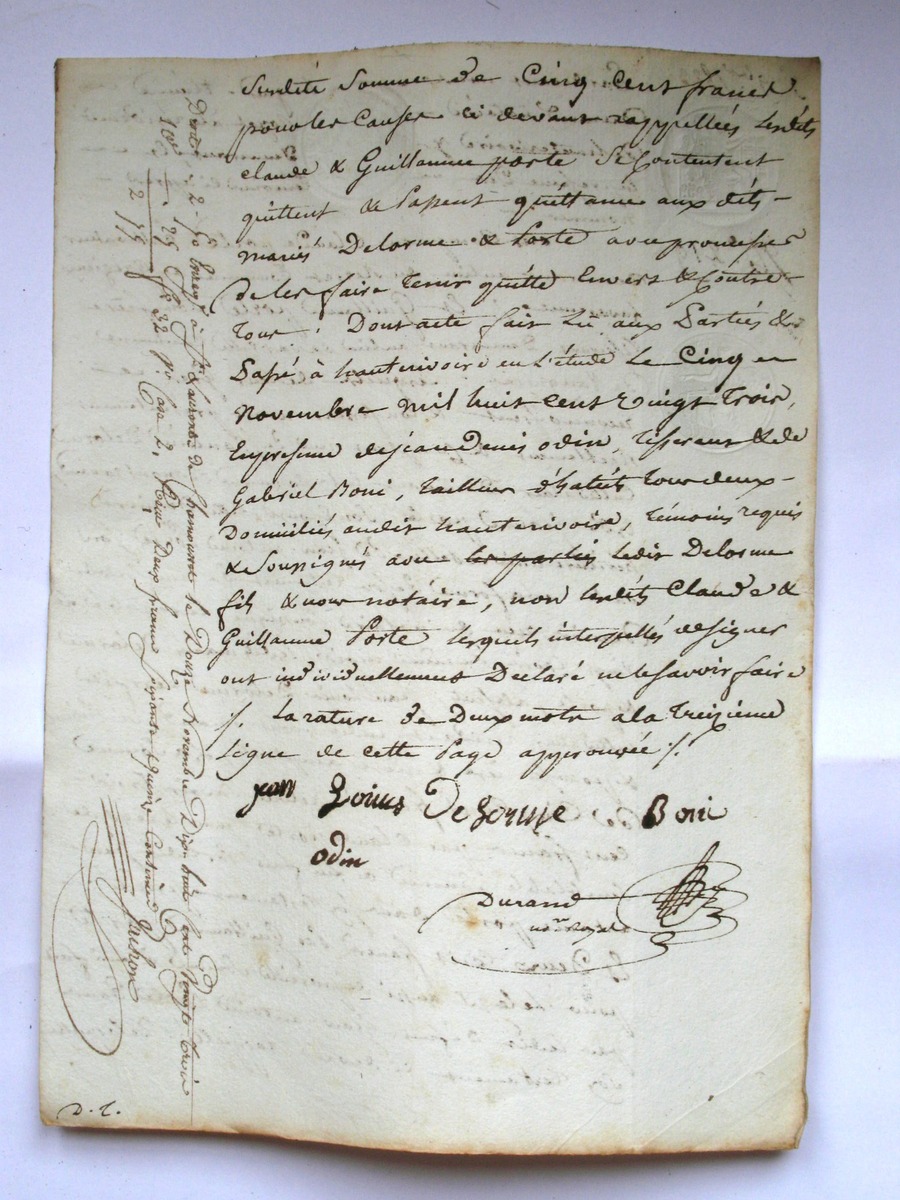 Susdite Somme de Cinq Cent francs
pour les Causes ci devant rappellées lesdits
Claude & Guillaume porte Se Contentent
quittent & Passent quittance aux dits
mariés Delorme & Porte avec promesse
de les faire tenir quitte Envers & Contre
Tous. Dont acte fait lu aux Parties &
Passé à hauterivoire en l'étude le Cinq
Novembre mil huit cent vingt Trois,
En presence de jean Denis odin, tisserant & de
Gabriel Boni, Tailleur d'habits tous deux
Domiciliés audit hauterivoire, témoins requis
& Soussignés avec les parties ledit Delorme
fils & nous notaire, non lesdits Claude &
Guillaume Porte lesquels interpellés de signer
ont individuellement Déclaré ne le savoir faire
./. La rature de Deux mots a la Treizième
Ligne de cette Page approuvée ./.
jean Louis Delorme Boni
odin
Durand
no.re Royal
Enreg.é à S.t Laurent de Chamousset le Douze Novembre Dix huit Cent Vingt Trois
f.o 32 v.o Case 2. Reçu Deux francs Soixante Quinze Centimes
Droit 2 - 50
10.e - 25
2 75
D. L.